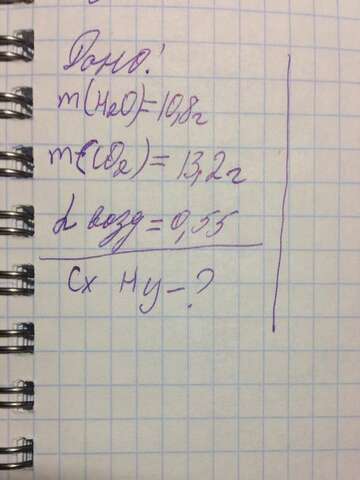 Дано:
m(H₂O)=10,8г
m(CO₂)=13,2г
d возд=0,55
Cx Hy-?